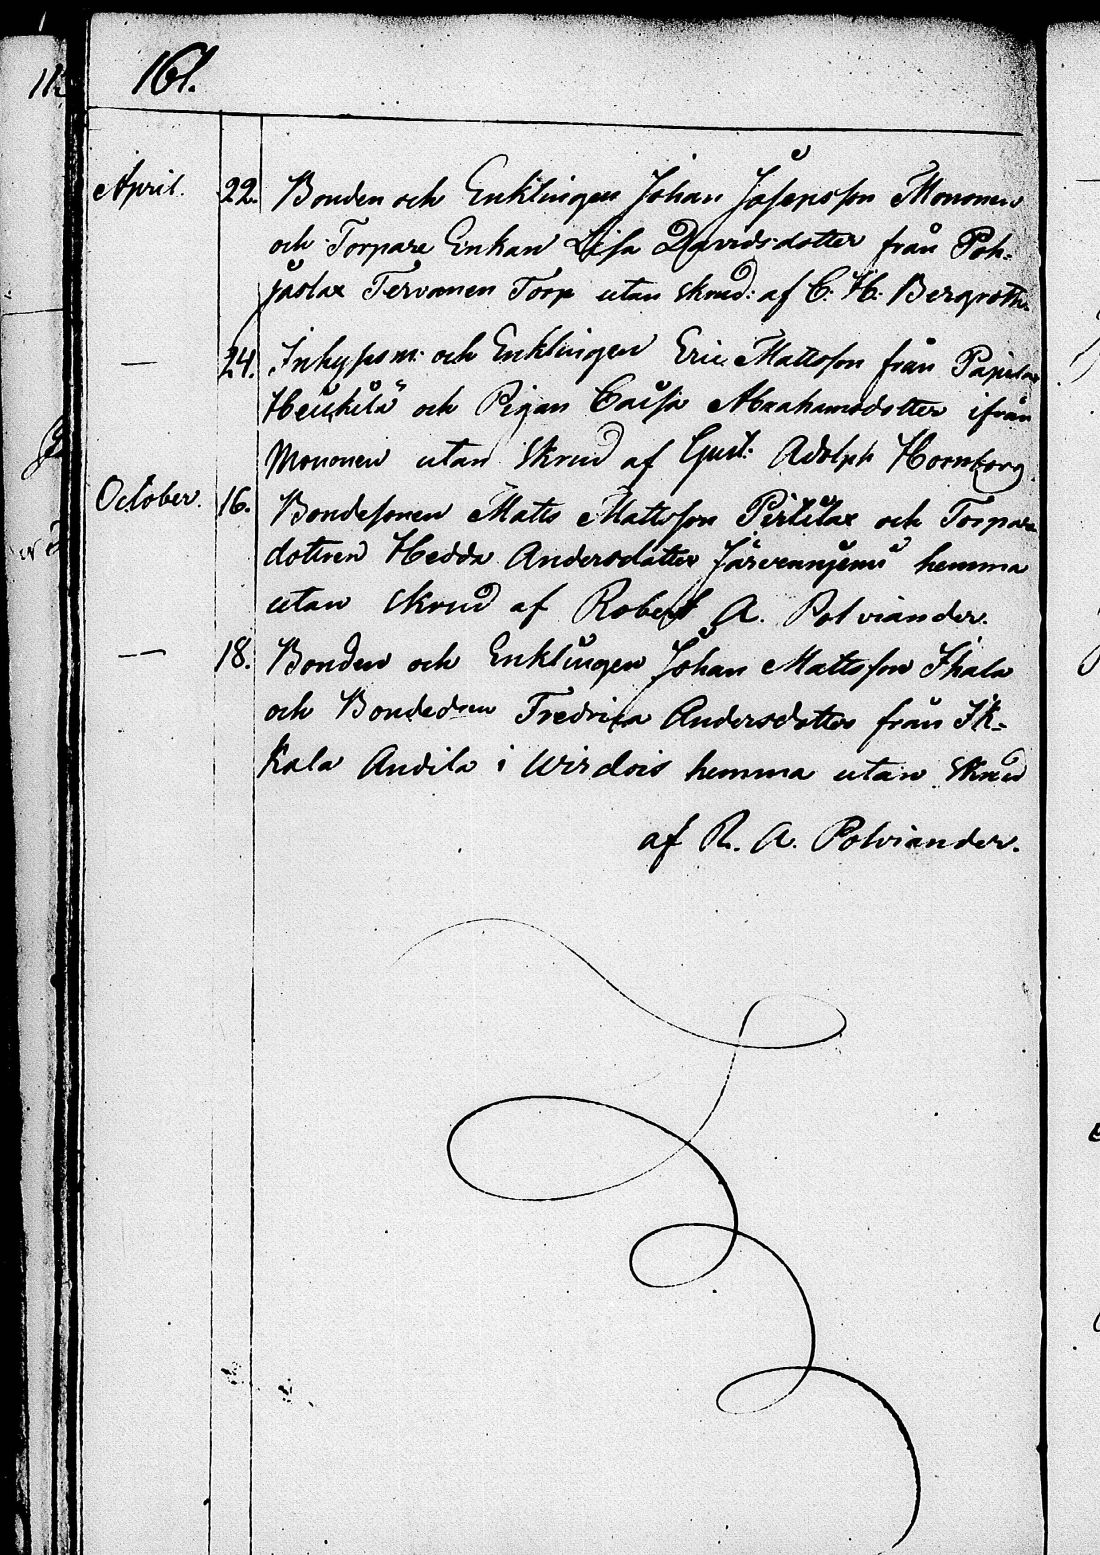 161.
April. 22. Bonden och Enklingen Johan Josepsson Mononen
och Torpare Enkan Lisa Davidsdotter från Poh-
jaslax Tervanen Torp utan skrud: af C. H. Bergroth.
— 24. Inhysesm: och Enklingen Eric Mattsson från
Heikkilä och Pigan Caisa Abrahamsdotter ifrån
Mononen utan skrud af Gust: Adolph Hornborg
October. 16. Bondesonen Matts Mattsson och Torpare
dottren Hedda Andersdotter hemma
utan skrud af Robert A. Polviander.
— 18. Bonden och Enklingen Johan Mattsson Ihala
och Bondedren Fredrica Andersdotter från Ik-
kala Andila i Wirdois hemma utan skrud
af R. A. Polviander.